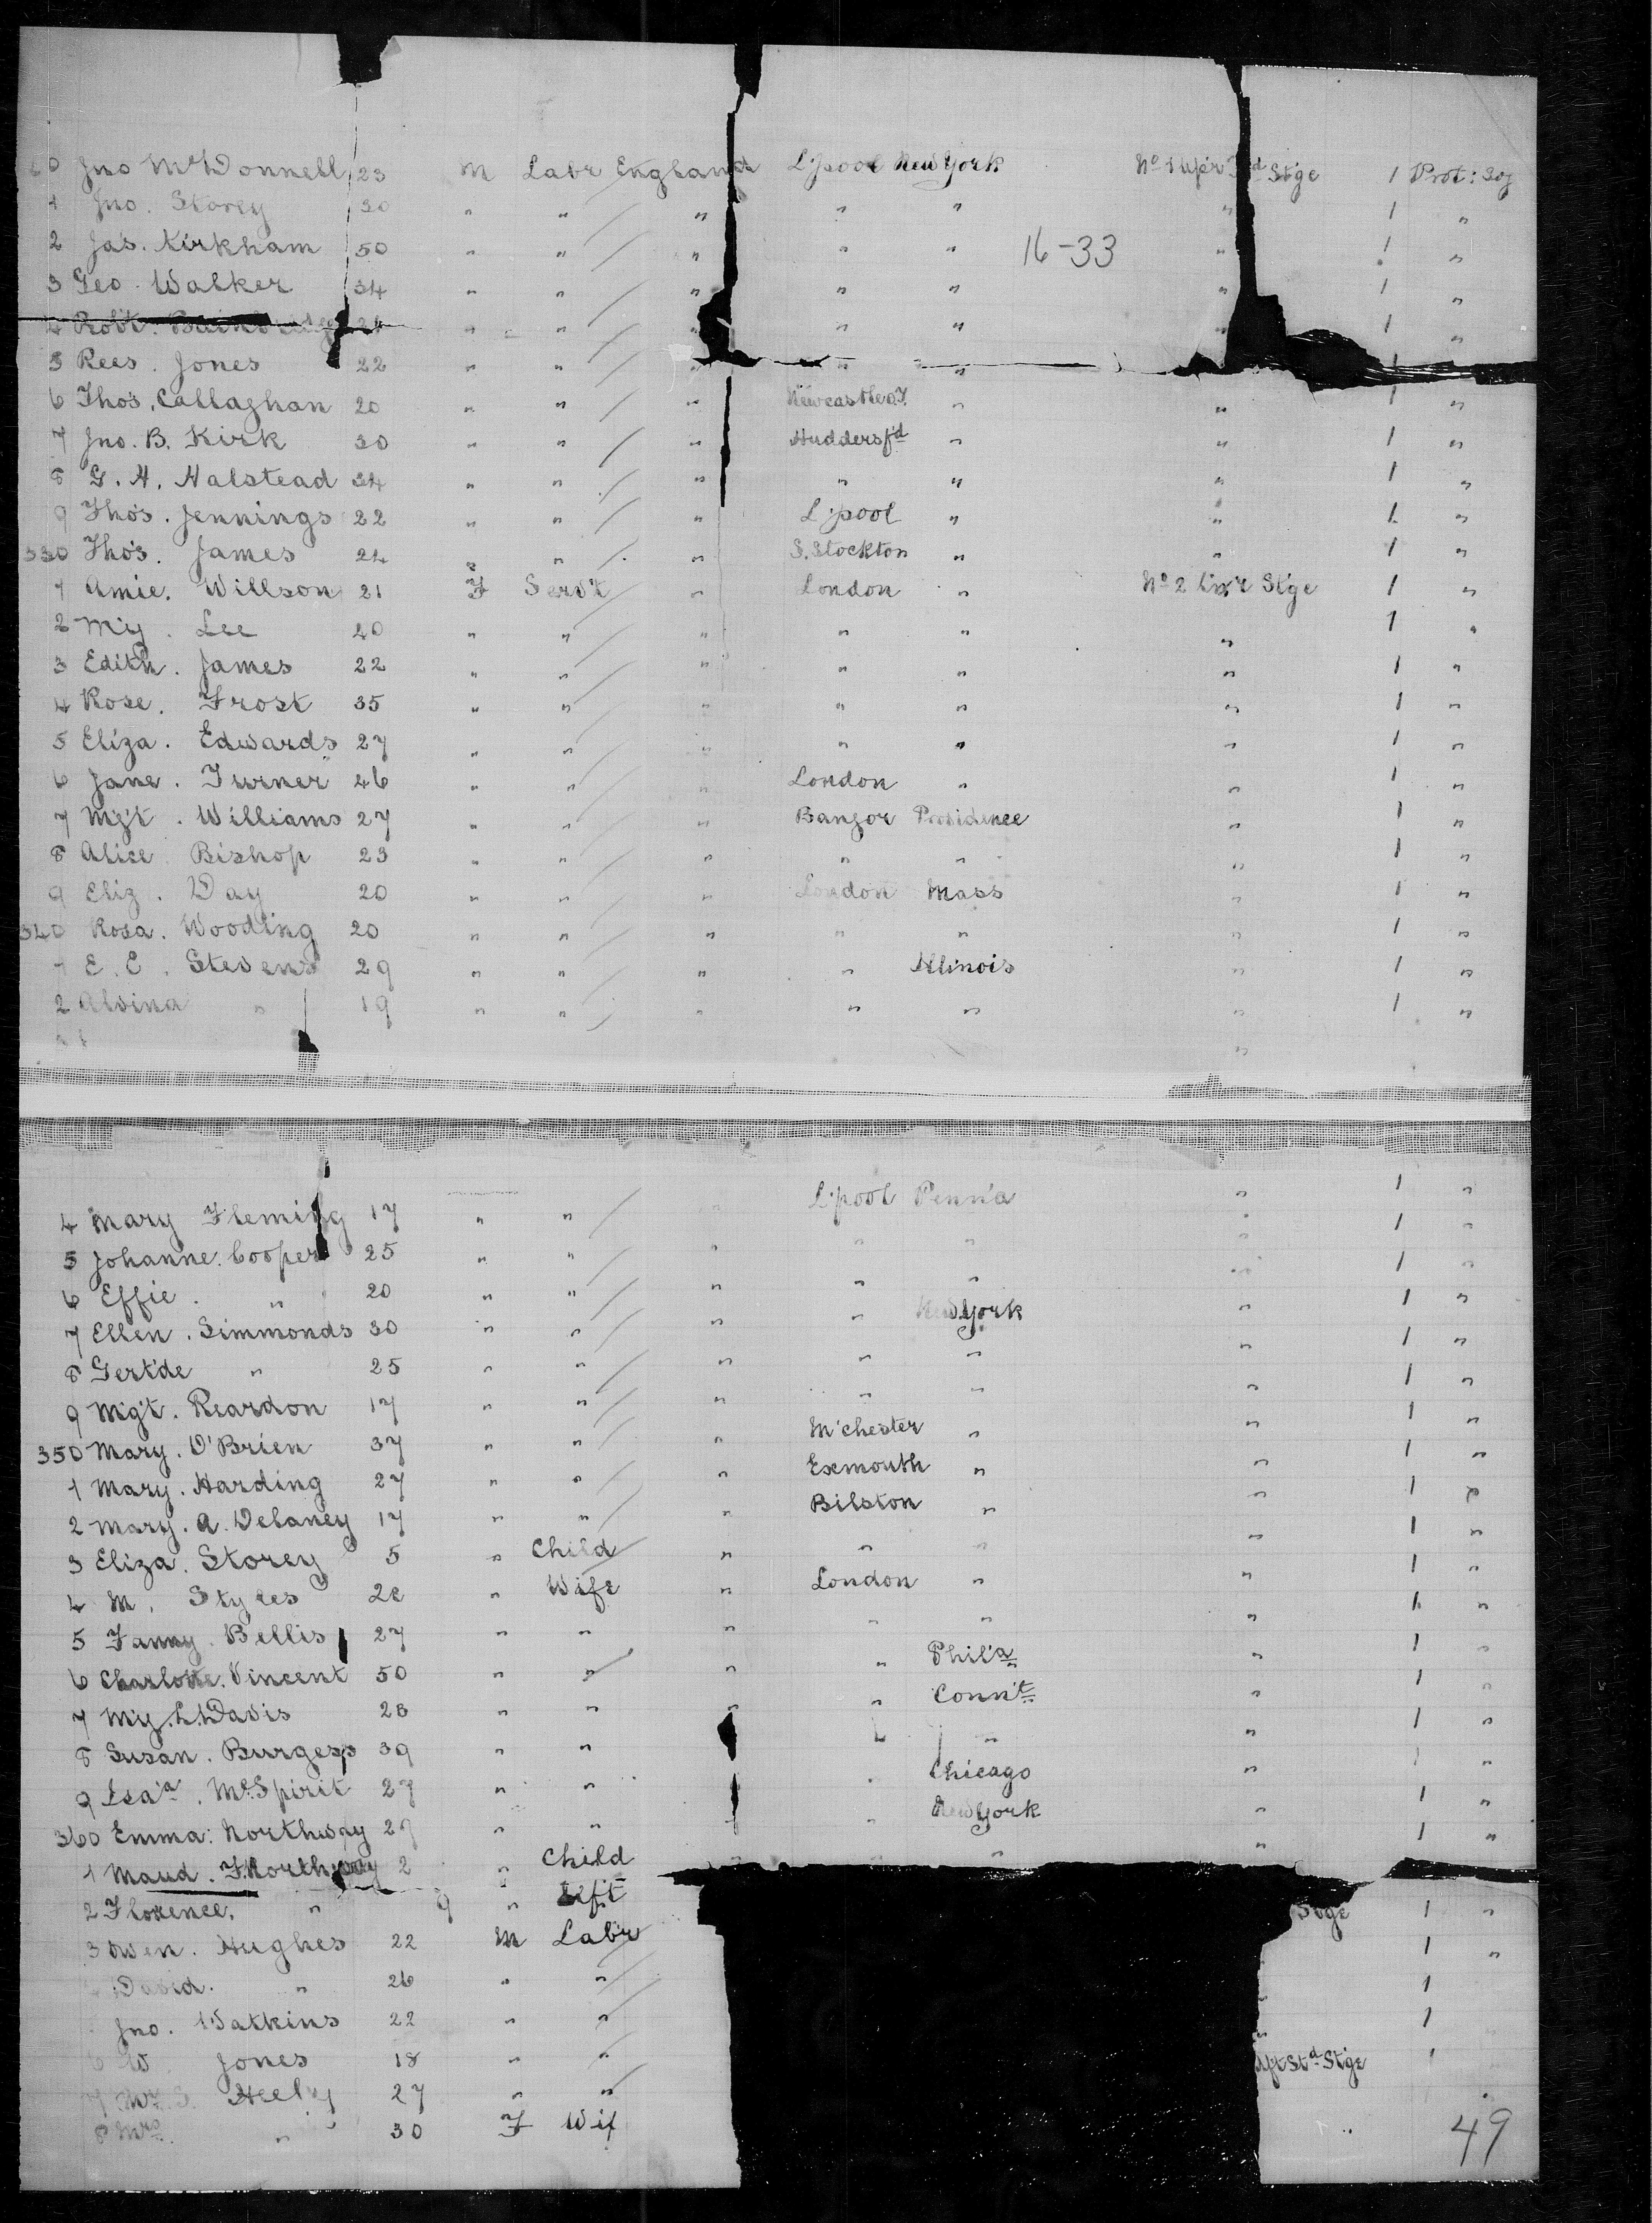 20 Jno McDonnell 23 M Labr England L'pool New York No 1 Upr 3rd Stge 1 Prot: Soj
1 Jno. Storey 30 " " " " " " 1 "
2 Jas. Kirkham 50 " " " " " 16-33 " 1 "
3 Geo. Walker 34 " " " " " " 1 "
4 Robt. " " " " " " 1 "
5 Rees. Jones 22 " " " " " 1
6 Thos. Callaghan 20 " " " Newcastle o.T. " " 1 "
7 Jno. B. Kirk 30 " " " Huddersf'd " " 1 "
8 G. H. Halstead 24 " " " " " " 1 "
9 Thos. Jennings 22 " " " L'pool " " 1 "
330 Thos. James 24 " " " S. Stockton " " 1 "
1 Amie. Willson 21 F Serv't " London " No 2 Stge 1 "
2 My. Lee 40 " " " " " " 1 "
3 Edith. James 22 " " " " " " 1 "
4 Rose. Frost 35 " " " " " " 1 "
5 Eliza. Edwards 27 " " " " " " 1 "
6 Jane. Turner 46 " " " London " " 1 "
7 Mgt. Williams 27 " " " Bangor Providence " 1 "
8 Alice. Bishop 23 " " " " " " 1 "
9 Eliz. Day 20 " " " London Mass " 1 "
340 Rosa. Wooding 20 " " " " " " 1 "
1 E. E. Stevens 29 " " " " Illinois " 1 "
2 Alvina " 19 " " " " " " 1 "
"
L'pool Penn'a " 1 "
4 Mary Fleming 17 " " " " " " 1 "
5 Johanne. Cooper 25 " " " " " " 1 "
6 Effie. " 20 " " " " New York " 1 "
7 Ellen. Simmonds 30 " " " " " " 1 "
8 Gert'de " 25 " " " " " " 1 "
9 Mgt. Reardon 17 " " " M'chester " " 1 "
350 Mary. O'Brien 37 " " " Exmouth " " 1 "
1 Mary. Harding 27 " " " Bilston " " 1 "
2 Mary. A. Delaney 17 " " " " " " 1 "
3 Eliza. Storey 5 " Child " London " " 1 "
4 M. Styles " Wife " " " " 1 "
5 Fanny. Bellis 27 " " " " Phil'a " 1 "
6 Charlotte. Vincent 50 " " " " Conn't " 1 "
7 My. L. Davis 28 " " " " " 1 "
8 Susan. Burgess 39 " " Chicago " 1 "
9 Isa'a. McSpirit 27 " " " New York " 1 "
360 Emma. Northway 29 " " " " " 1 "
1 Maud. F. Northway 2 " Child
2 Florence. " 9 " Inft Stge 1 "
3 Owen. Hughes 22 M Labr 1 "
David. " 26 " " 1
Jno. Watkins 22 " " 1
6 W. Jones 18 " " Aft St'd Stge 1
7 Mr. S. Heely 27 " "
8 Mrs. " 30 F Wif 49